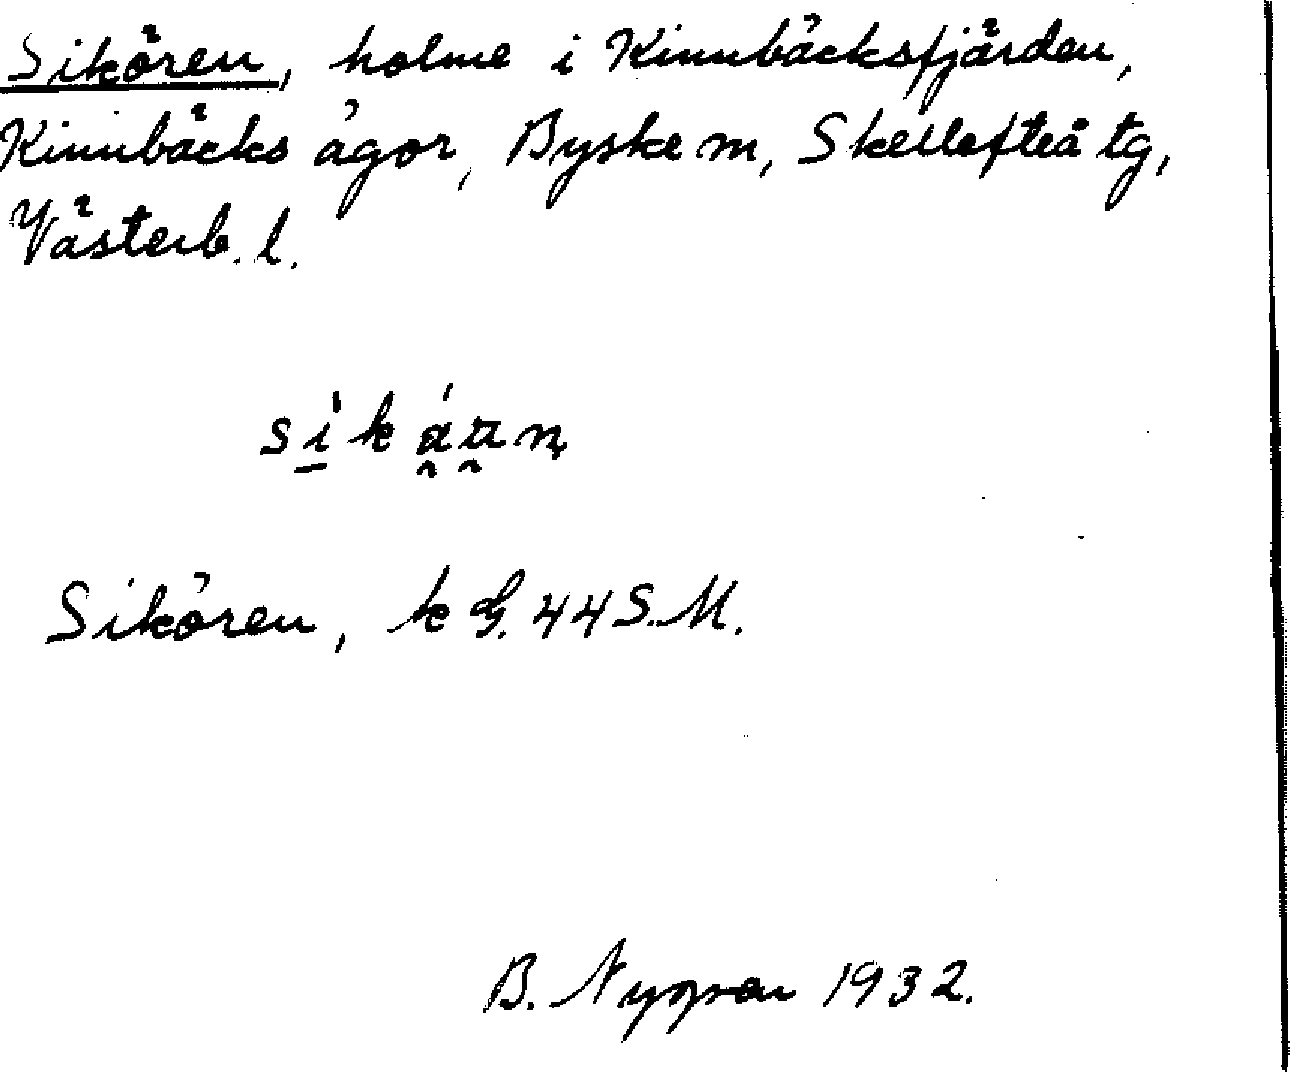 Sikören, holme i Kinnbäcksfjärden,
Kinnbäcks ägor, Byske m, Skellefteå tg,
Västerb. l.
Sikören, k G. 44 S.M.
B. Nygren 1932.